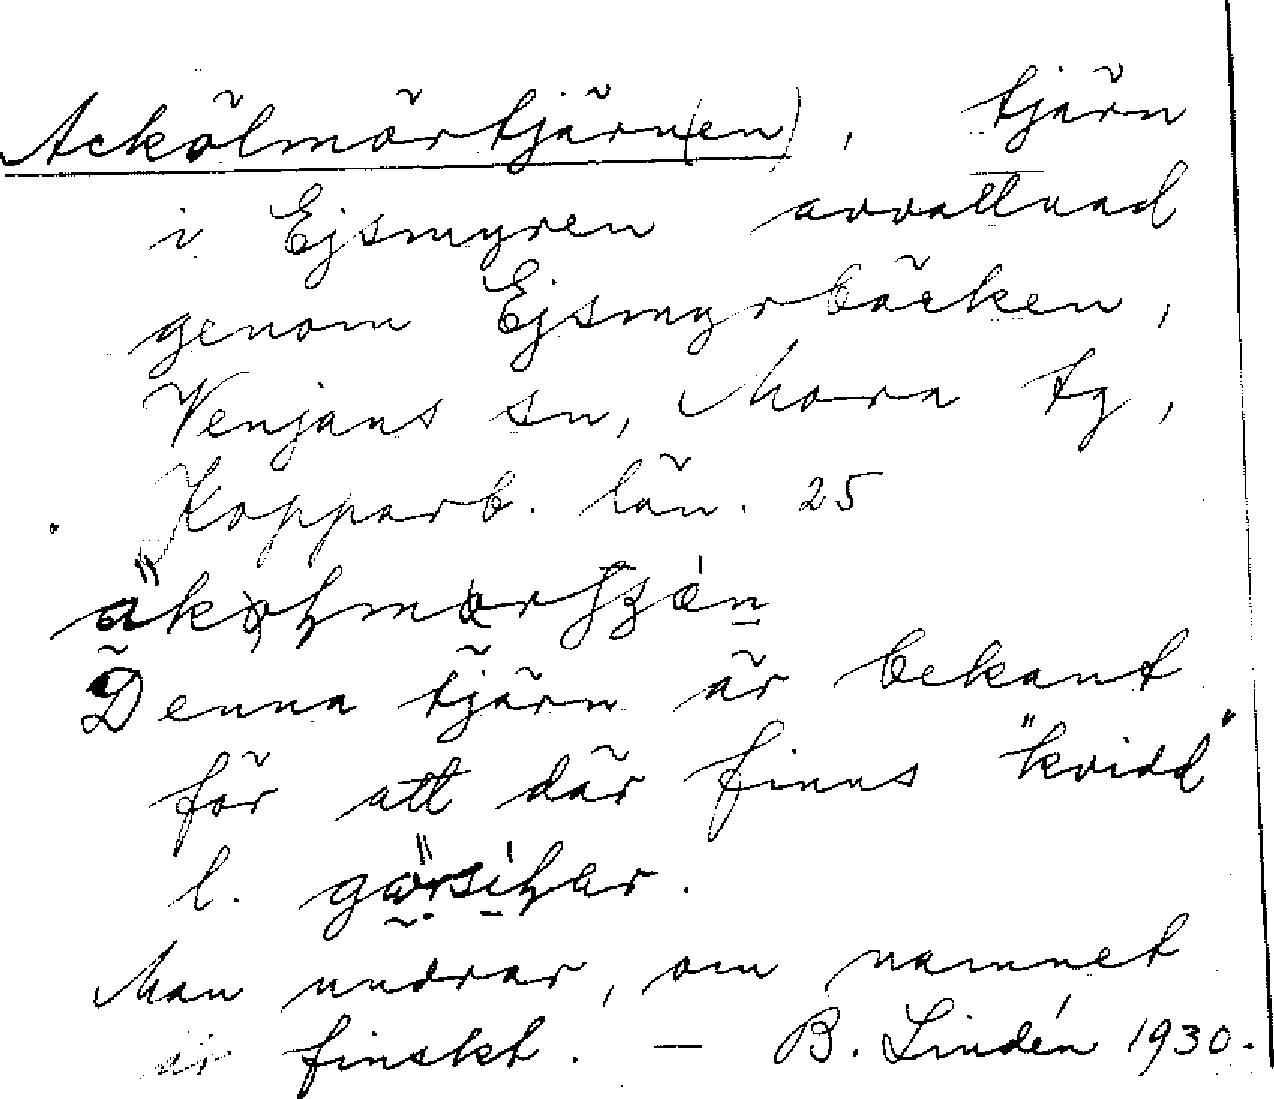 Ackölmörtjärn(en), tjärn
i Ejsmyren avvattnad
genom Ejsmyrbäcken,
Venjans sn, Mora tg,
Kopparb. län. 25
Denna tjärn är bekant
för att där finns "kvidd"
l.
Man undrar, om namnet
är finskt. — B. Lindén 1930.